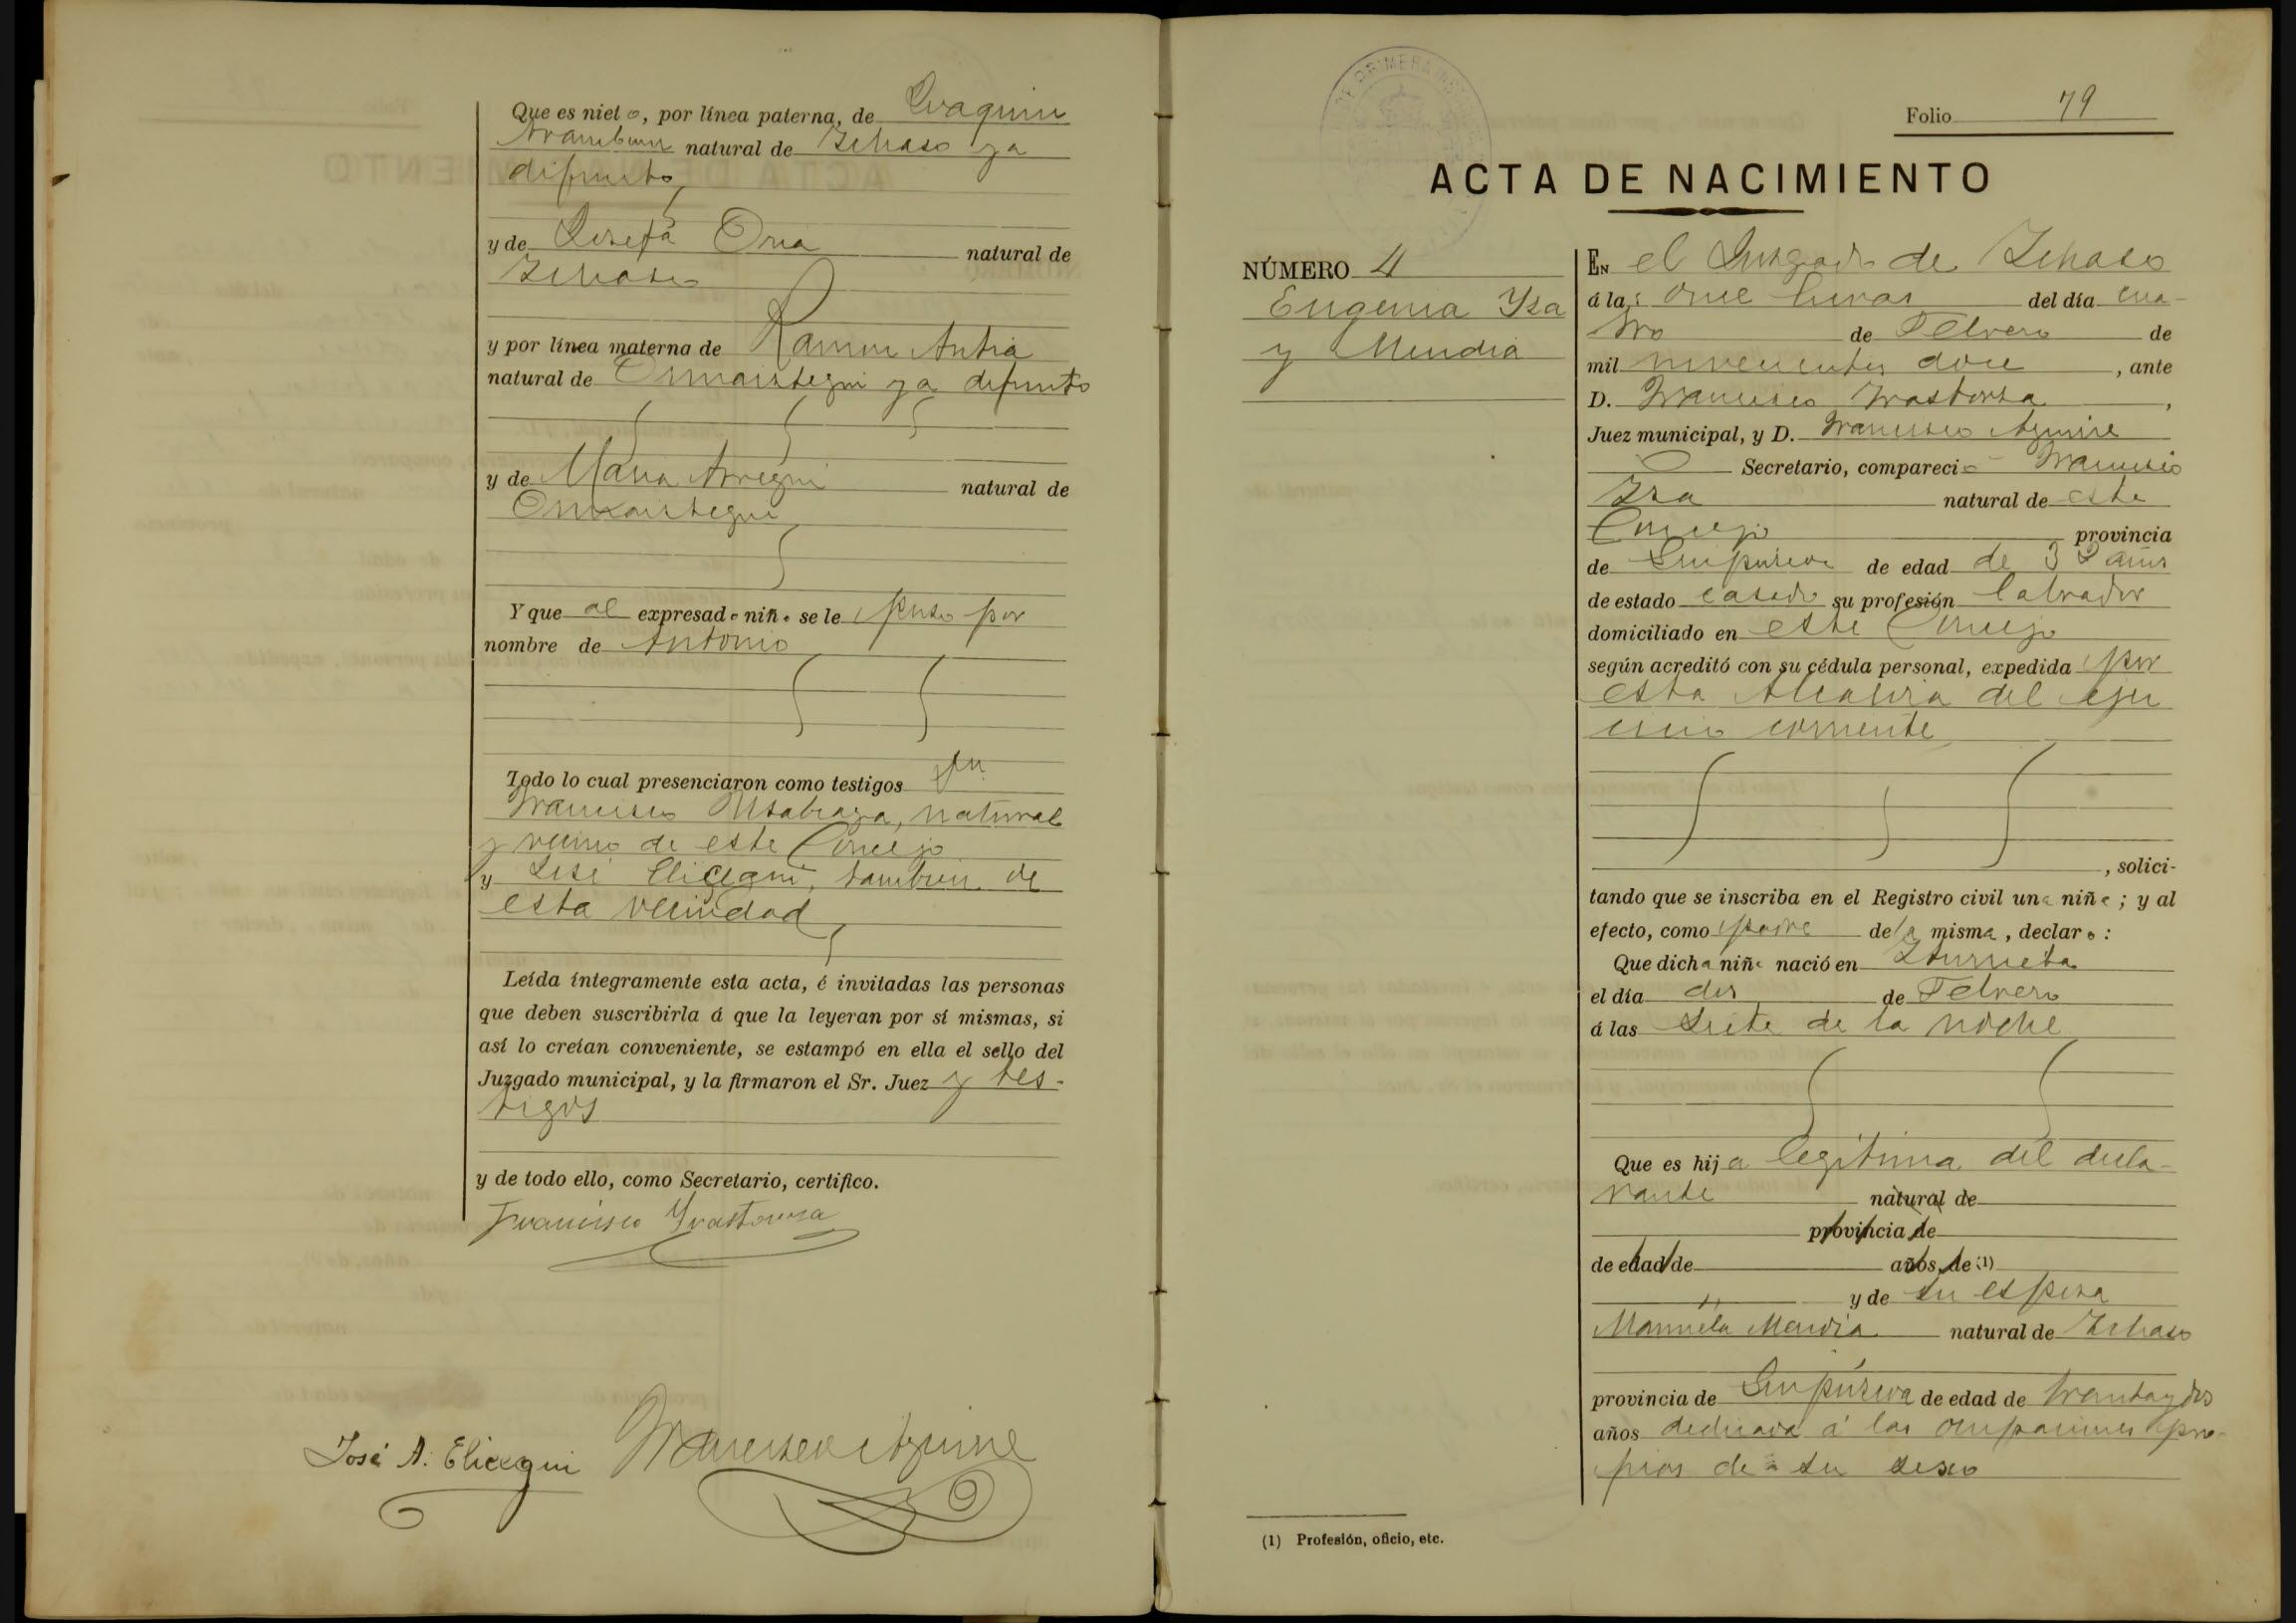 Que es nieto, por línea paterna, de Joaquin
Aramburu natural de Ichaso ya
difunto
y de Josefa Oria natural de
Ichaso
y por línea materna de Ramon Antia
natural de Ormaiztegui ya difunto
y de Maria Arregui natural de
Ormaiztegui
Y que al expresado niño se le puso por
nombre de Antonio
Todo lo cual presenciaron como testigos Dn
Francisco Usabiaga, natural
y vecino de este Concejo
y José Elicegui, tambien de
esta vecindad
Leída íntegramente esta acta, é invitadas las personas
que deben suscribirla á que la leyeran por sí mismas, si
así lo creían conveniente, se estampó en ella el sello del
Juzgado municipal, y la firmaron el Sr. Juez y tes-
tigos
y de todo ello, como Secretario, certifico.
Francisco Yrastorza
José A. Elicegui Francisco Aguirre
Folio 79
ACTA DE NACIMIENTO
NÚMERO 4
Eugenia Ysa
y Mendia
EN el Juzgado de Ichaso
á las once horas del día cua-
tro de Febrero de
mil novecientos doce, ante
D. Francisco Irastorza,
Juez municipal, y D. Francisco Aguirre
Secretario, compareció Francisco
Isa natural de este
Concejo provincia
de Guipúzcoa de edad de 32 años
de estado casado su profesión labrador
domiciliado en este Concejo
según acreditó con su cédula personal, expedida por
esta Alcaldia del ejer
cicio corriente
, solici-
tando que se inscriba en el Registro civil una niña; y al
efecto, como padre de la misma, declaro:
Que dicha niña nació en Iturrieta
el día dos de Febrero
á las siete de la noche
Que es hija legitima del decla-
rante natural de
provincia de
de edad de años, de (1)
" y de su esposa
Manuela Mendia natural de Ichaso
provincia de Guipúzcoa de edad de treinta y dos
años dedicada á las ocupaciones pro-
pias de su sexo
(1) Profesión, oficio, etc.